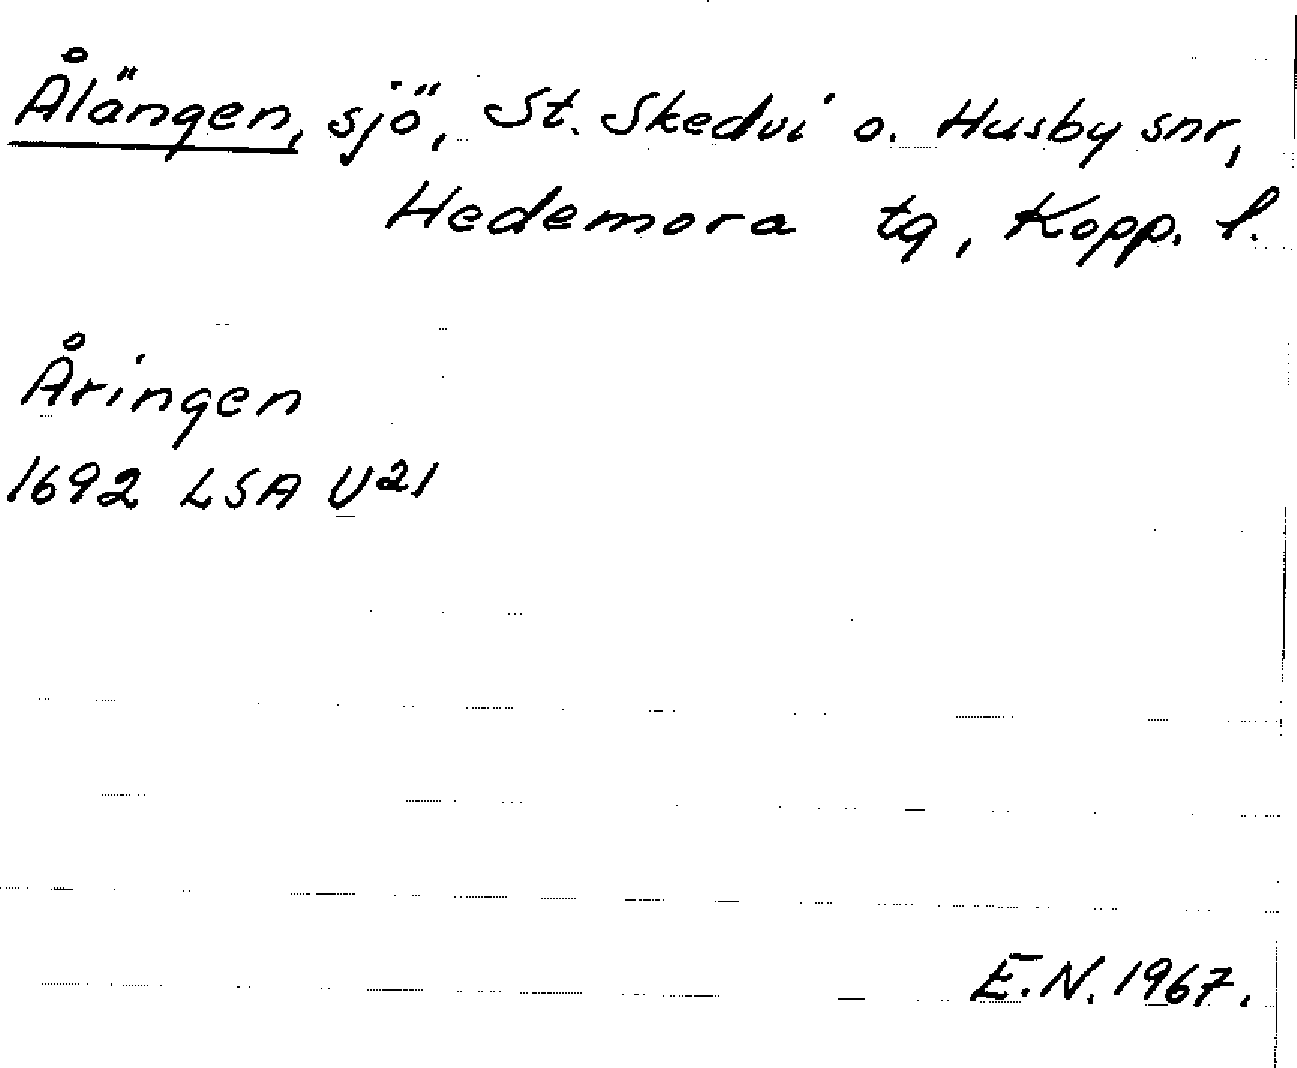 Ålängen, sjö, St. Skedvi o. Husby snr,
Hedemora tg, Kopp. l.
Åringen
1692 LSA U21
E.N. 1967.